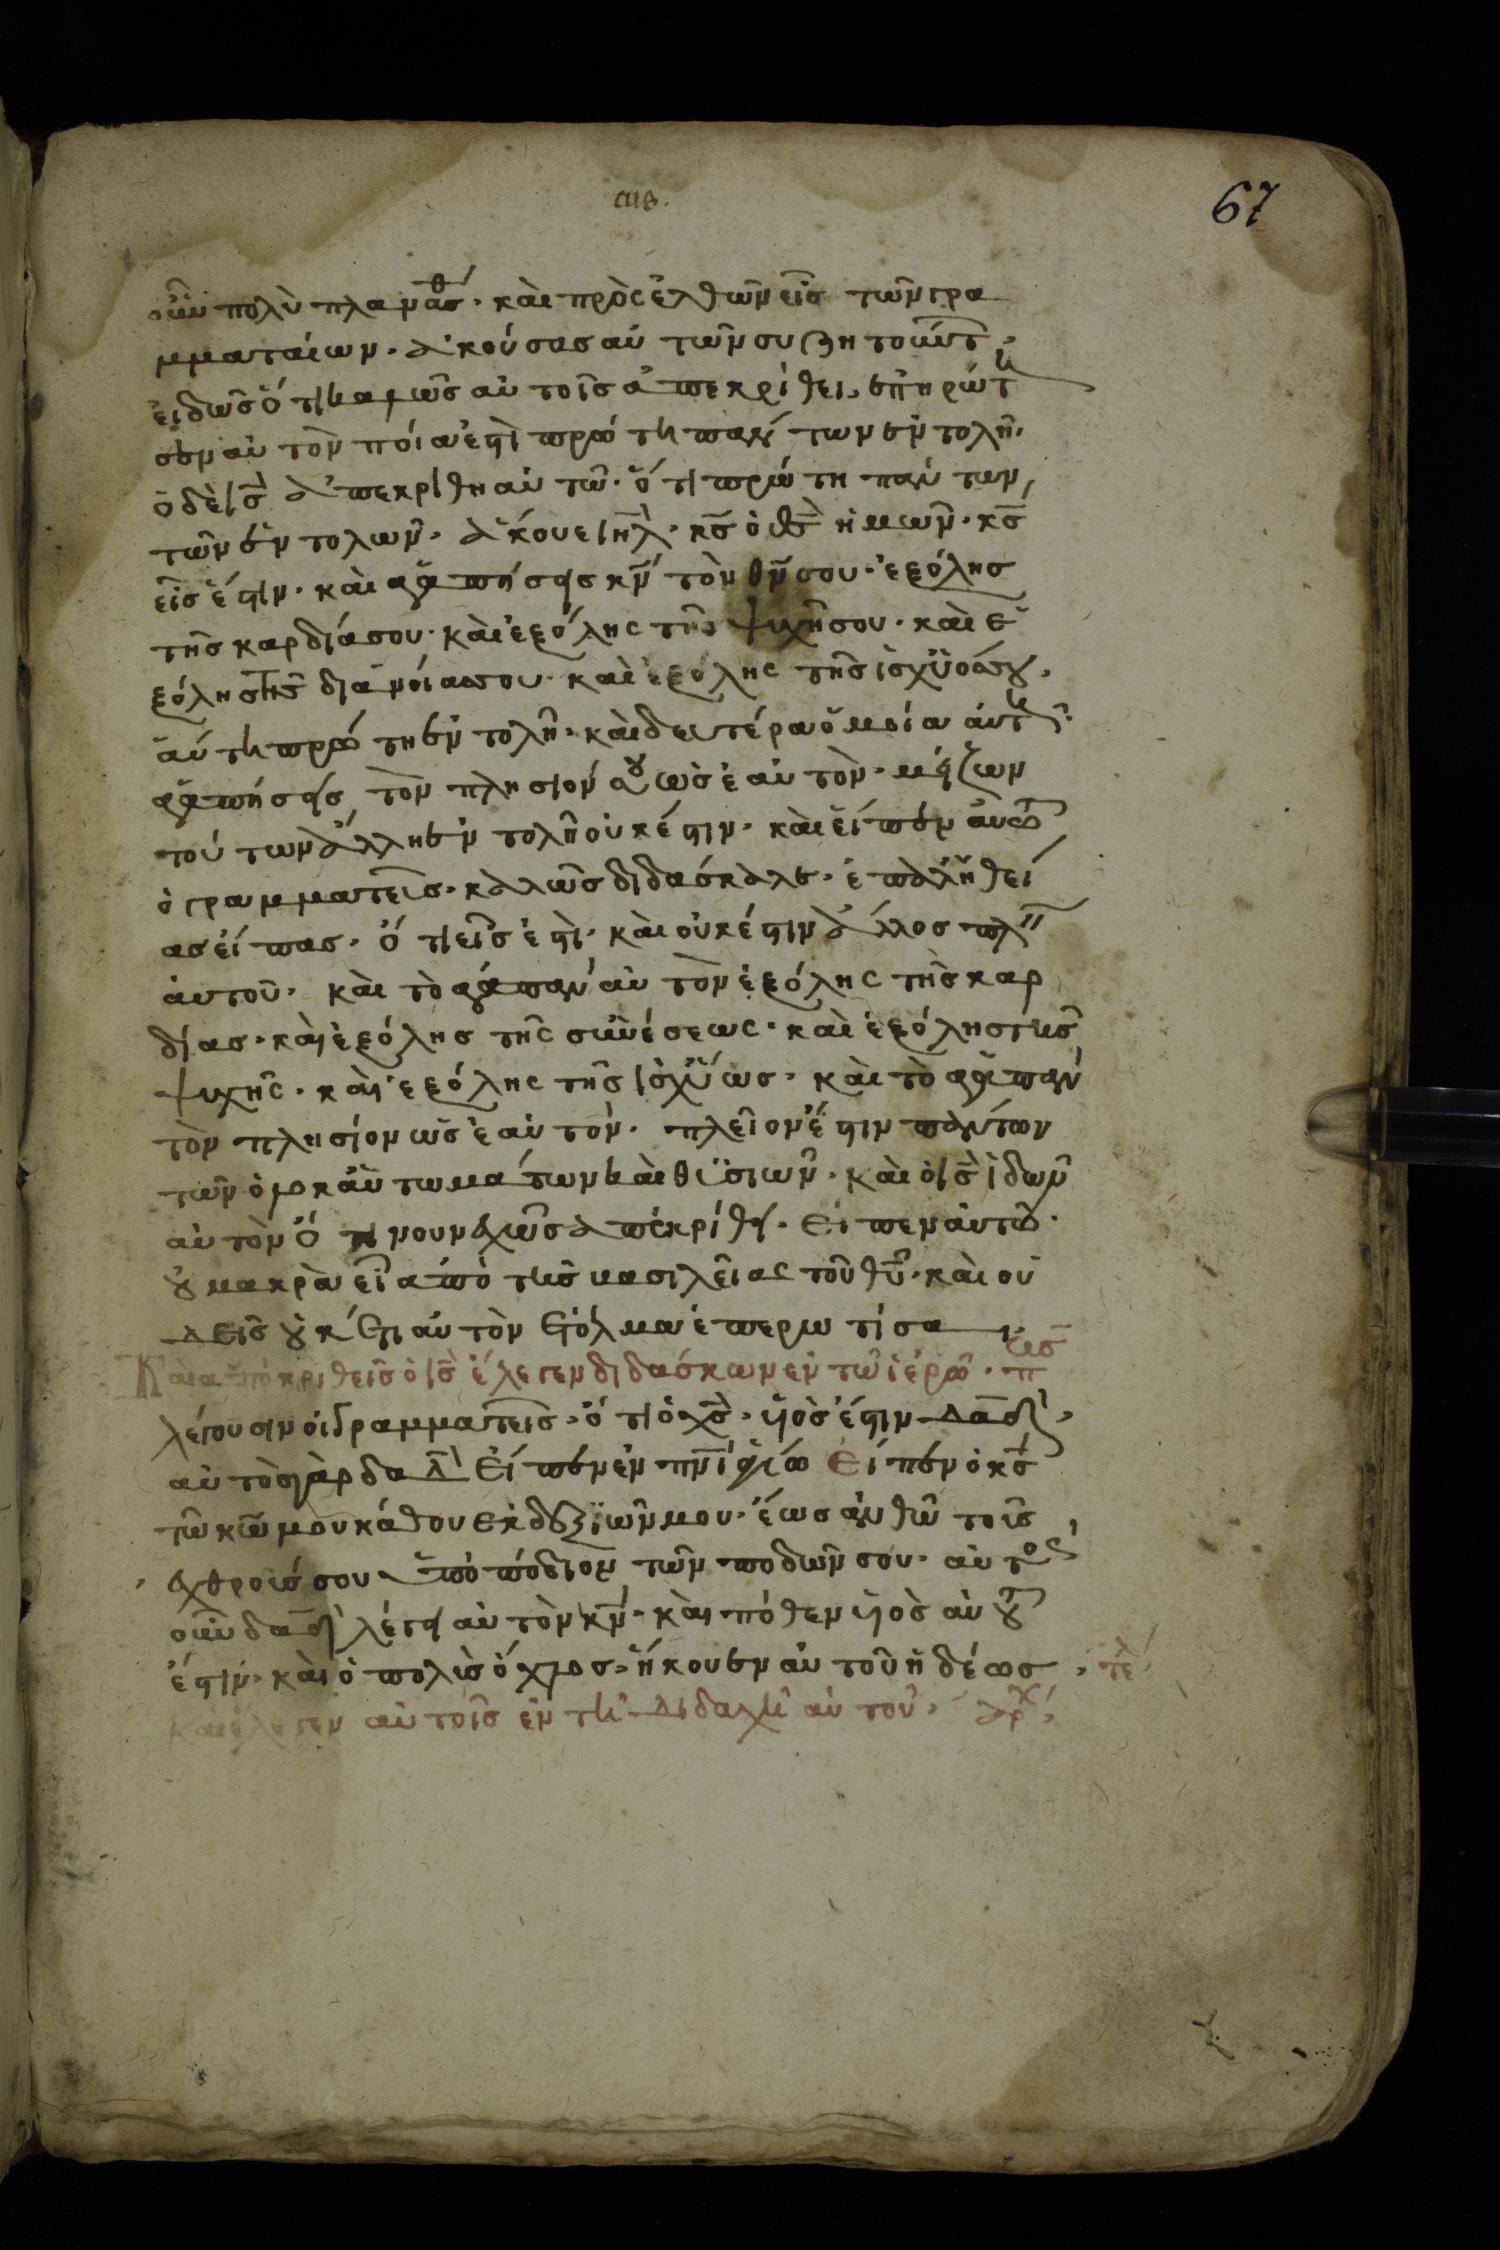 σιβ.
67
οὖν πολὺ πλανᾶσθ. καὶ πρὸς ἐλθῶν εἷς τῶν γρα
μματαίων. ἀκούσας αὐτῶν συζητούντ,
εἰδῶς ὅτι καλῶς αὐτοῖς ἀπεκρίθει, ἐπηρώτη
σεν αὐτὸν ποία ἐστὶ πρώτη πάντων ἐντολὴ.
ὁ δὲ ις ἀπεκρίθη αὐτῶ. ὅτι πρώτη πάντων,
τῶν ἐντολῶν. ἄκουε ιηλ. κς ὁ θς ἡμῶν. κς
εἷς ἔστιν. καὶ ἀγαπήσεις κν τὸν θν σου. ἐξόλης
τῆς καρδίας σου. καὶ ἐξόλης τῆς ψυχῆς σου. καὶ ἐ
ξόλης τῆς διανοίας σου. καὶ ἐξόλης τῆς ἰσχύος σου.
αὕτη πρώτη ἐντολὴ. καὶ δευτέρα ὁμοία αὐτῆ.
ἀγαπήσεις τὸν πλησίον σου ὡς ἑαυτὸν. μείζων
τούτων ἄλλη ἐντολὴ οὐκ ἔστιν. καὶ εἶπεν αὐτῶ
ὁ γραμματεὶς. καλῶς διδάσκαλε. ἐπ ἀληθεί
ας εἶπας. ὅτι εἷς ἐστὶ. καὶ οὐκ ἔστιν ἄλλος πλὴν
αὐτοῦ. καὶ τὸ ἀγαπᾶν αὐτὸν ἐξόλης τῆς καρ
δίας. καὶ ἐξόλης τῆς συνέσεως. καὶ ἐξόλης τῆς
ψυχῆς. καὶ ἐξόλης τῆς ἰσχύως. καὶ τὸ ἀγαπᾶν
τὸν πλησίον ὡς ἑαυτόν. πλεῖον ἔστιν πάντων
τῶν ὁλοκαυτωμάτων καὶ θυσιῶν. καὶ ὁ ις ἰδῶν
αὐτὸν ὅτι νουνεχῶς ἀπεκρίθει. εἶπεν αὐτῶ.
οὐ μακρὰν εἶ ἀπὸ τῆς βασιλείας τοῦ θυ. καὶ οὐ
δεὶς οὐκέτι αὐτὸν ἐτόλμα ἐπερωτῆσαι.
Καὶ ἀποκριθεὶς ὁ ις ἔλεγεν διδάσκων ἐν τῶ ἱερῶ. πως
λέγουσιν οἱ γραμματεῖς. ὅτι ὁ χς. υἱὸς ἔστιν δαδ.
αὐτὸς γὰρ δαδ εἶπεν ἐν πνι ἁγίω εἶπεν ὁ κς
τῶ κω μου κάθου ἐκ δεξιῶν μου. ἕως ἂν θῶ τοὺς
ἐχθρούς σου ὑποπόδιον τῶν ποδῶν σου. αὐτὸς
οὖν δαδ λέγει αὐτὸν κν. καὶ πόθεν υἱὸς αὐτοῦ
ἔστιν. καὶ ὁ πολὺς ὄχλος. ἤκουεν αὐτοῦ ἡδέως. τέλ
καὶ ἔλεγεν αὐτοῖς ἐν τῆ διδαχῆ αὐτοῦ. ἀρχ